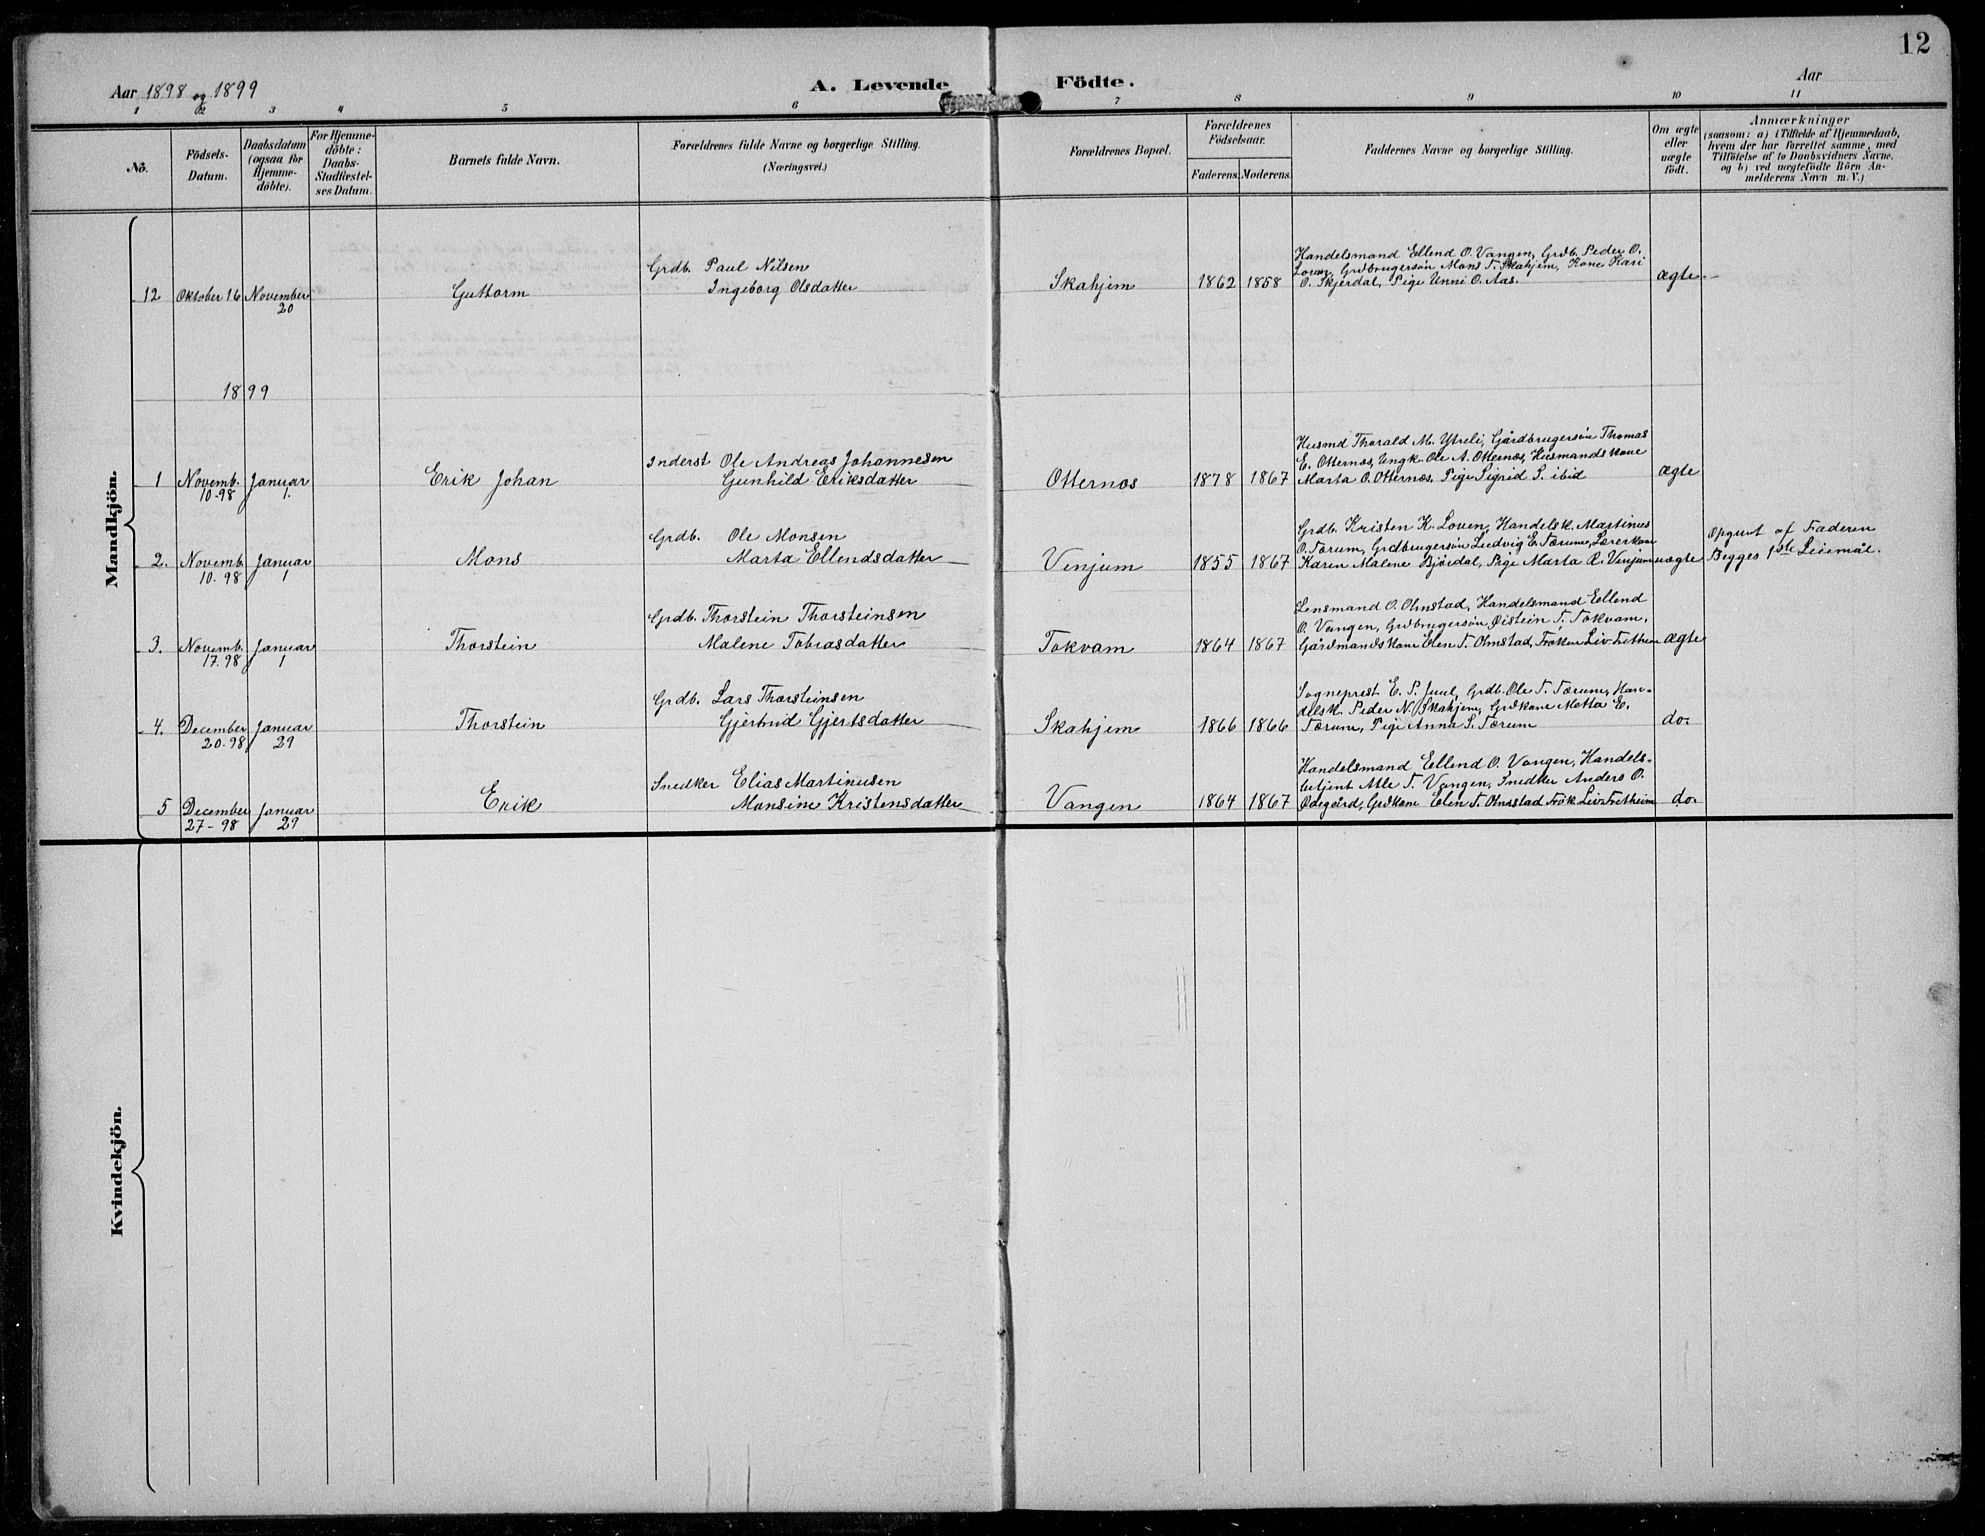 12
Aar 1898 og 1899
A. Levende Födte.
Aar
1 2 3 4 5 6 7 8 9 10 11
No.
Födsels-
Datum.
Daabsdatum
(ogsaa for
Hjemme-
döbte).
For Hjemme-
döbte:
Daabs-
Stadfæstel-
ses Datum.
Barnets fulde Navn.
Forældrenes fulde Navne og borgerlige Stilling.
(Næringsvei.)
Forældrenes Bopæl.
Forældrenes
Födselsaar.
Faderens. Moderens.
Faddernes Navne og borgerlige Stilling.
Om ægte
eller
uægte
födt.
Anmærkninger
(saasom: a) i Tilfælde af Hjemmedaab,
hvem der har forrettet samme, med
Tilföielse af to Daabsvidners Navne.
og b) ved uægtefödte Börn An-
melderens Navn m. V.)
Mandkjön.
12 Oktober 16 November
20
Guttorm
Grdb. Paul Nilsen
Ingeborg Olsdatter
Skahjem
1862 1858
Handelsmand Ellend O. Vangen, Grdb. Peder O.
Loven, Grdbrugersön Mons T. Skahjem, Kone Kari
O. Skjerdal, Pige Unni O. Aas.
ægte
1899
1 Novemb.
10-98
Januar
1.
Erik Johan
Inderst Ole Andreas Johannesen
Gunhild Eriksdatter
Otternes
1878 1867
Husmd Thorald M. Ytreli, Gårdbrugersön Thomas
E. Otternes, Ungk. Ole A. Otternes, Husmandskone
Marta O. Otternes, Pige Sigrid S. ibid
ægte
2. Novemb.
10.98
Januar
1
Mons
Grdb. Ole Monsen
Marta Ellendsdatter
Vinjum
1855 1867
Grdb. Kristen K. Loven, Handelsk. Martinus
O. Tærum, Grdbrugersön Ludvig E. Tærum, Lærerkone
Karen Malene Björdal, Pige Marta R. Vinjum
uægte
Opgivet af Faderen
Begges 1ste Leiemål.
3. Novemb.
17.98
Januar
1
Thorstein
Grdb. Thorstein Thorsteinsen
Malene Tobiasdatter
Tokvam
1864 1867
Lensmand O. Olmstad, Handelsmand Ellend
O. Vangen, Grdbrugersön Øistein T. Tokvam,
Gårdmandskone Elen T. Olmstad, Fröken Liv Fretheim
ægte
4. December
20.98
Januar
29
Thorstein
Grdb. Lars Thorsteinsen
Gjertrud Gjertsdatter
Skahjem
1866 1866
Sogneprest E. P. Juul, Grdb. Ole T. Tærum, Han-
delsk. Peder N. Skahjem, Grdkone Metta E.
Tærum, Pige Anna S. Tærum
do.
5 December
27-98
Januar
29
Erik
Snedker Elias Martinusen
Monsine Kristensdatter
Vangen
1864 1867
Handelsmand Ellend O. Vangen, Handels-
betjent Atle T. Vangen, Snedker Anders O.
Ödegård, Grdkone Elen T. Olmstad Frök. Liv Fretheim
do.
Kvindekjön.